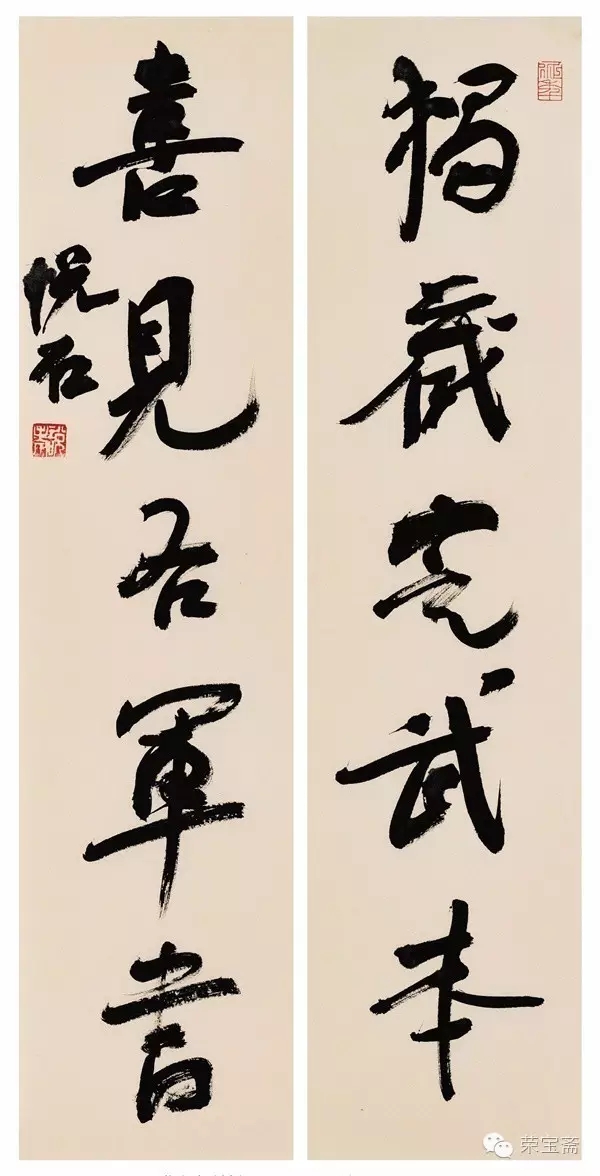 獨藏定武本
喜見右軍書
悦石
荣宝斋